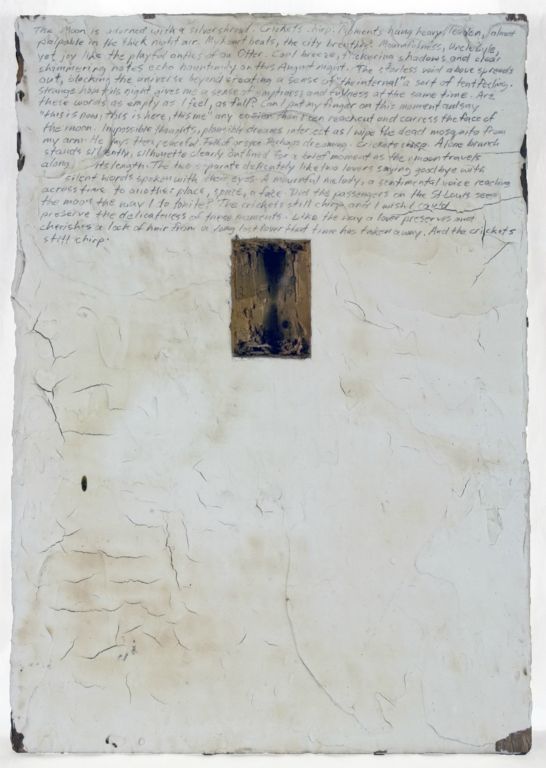 The Moon is adorned with a silver shred. Crickets chirp. Moments hang heavy, leaden, almost
palpable in the thick night air. My heart beats, the city breathes. Mournfulness,
yet joy like the playful antics of an Otter. Cool breeze, flickering shadows, and clear
shimmering notes echo hauntingly on this August night. The starless void above spreads
out, blocking the universe beyond creating a sense of "the internal", a sort of tent feeling.
Strange how this night gives me a sense of emptiness and fullness at the same time. Are
these words as empty as I feel, as full? Can I put my finger on this moment and say
"this is now, this is here, this me" any easier than I can reach out and carress the face of
the moon. Impossible thoughts, plausible dreams intersect as I wipe the dead mosquito from
my arm. He lays there, peaceful. Perhaps dreaming. Crickets chirp. A lone branch
stands silently, silhouette clearly outlined for a brief moment as the moon travels
along its length. The two separate delicately like two lovers saying goodbye with
silent words spoken with their eyes. A mournful melody, a sentimental voice reaching
across time to another place, space, a face. Did the passengers on the St Louis see
the moon the way I do tonite? The crickets still chirp and I wish I could
preserve the delicateness of these moments. Like the way a lover preserves and
cherishes a lock of hair from a long lost lover that time has taken away. And the crickets
still chirp.